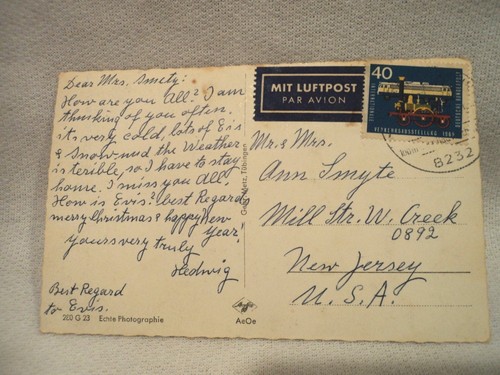 Dear Mrs. Smety:
How are you All? I am
thinking of you often.
its very cold, lots of Eis
& Snow, and the Weather
is terible, so I have to stay
home. I miss you All.
How is Evis? best Regard
merry Christmas & happy New
Year!
Yours very truly
Hedwig
Best Regard
to Evis.
2E0 G 23 Echte Photographie
Metz, Tübingen
AeOe
MIT LUFTPOST
PAR AVION
40
DEUTSCHE BUNDESPOST
INTERNATIONALE
VERKEHRSAUSSTELLUNG 1965
8232
Mr. & Mrs.
Ann Smyte
Mill Str. W. Creek
0892
New Jersey
U.S.A.